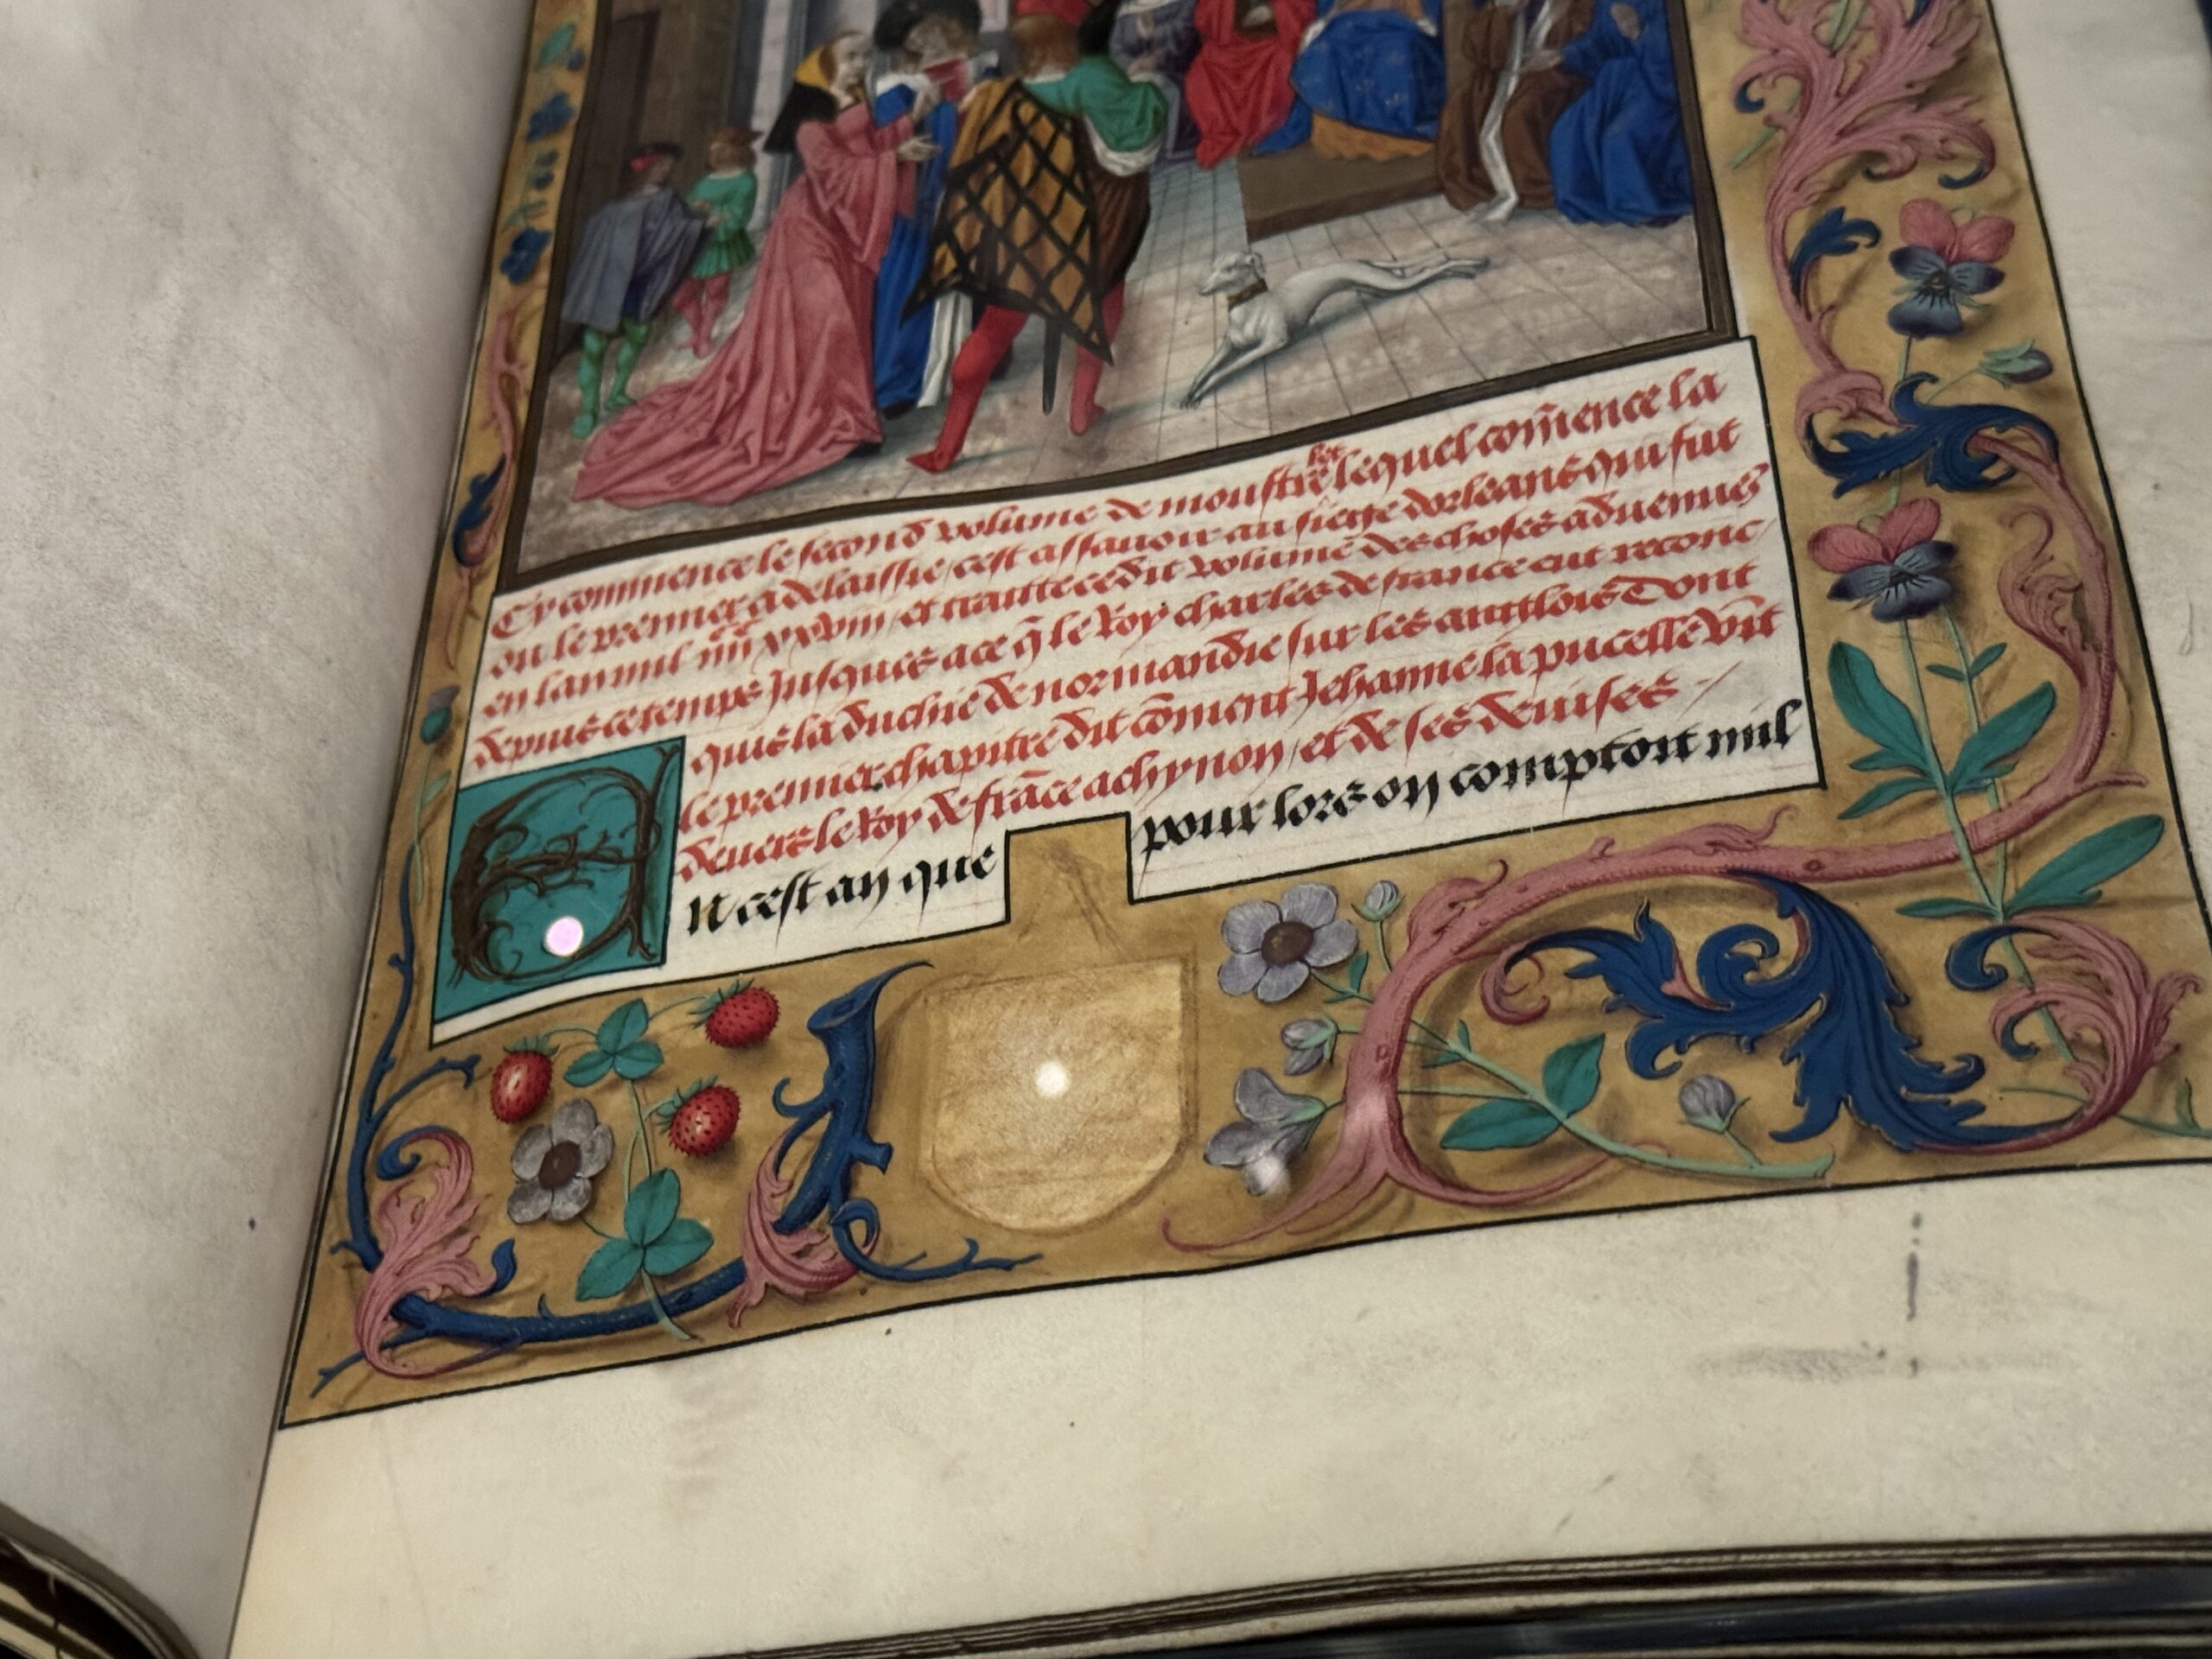 Cy commence le second volume de monstrelet lequel com̄ence la
ou le premier a delaissie / cest assauoir au siege dorleans qui fut
en lan mil iiiic xxviii / et traitte cedit volume des choses aduenues
depuis ce temps Jusques a ce q̄ le Roy charles de france eut reconc
quis la duchie de normandie sur les anglois Dont
le premier chapitre dit cōment Jehanne la pucelle vīt
deuers le Roy de frāce a chynon / et de ses deuises
En cest an que pour lors on comptoit mil